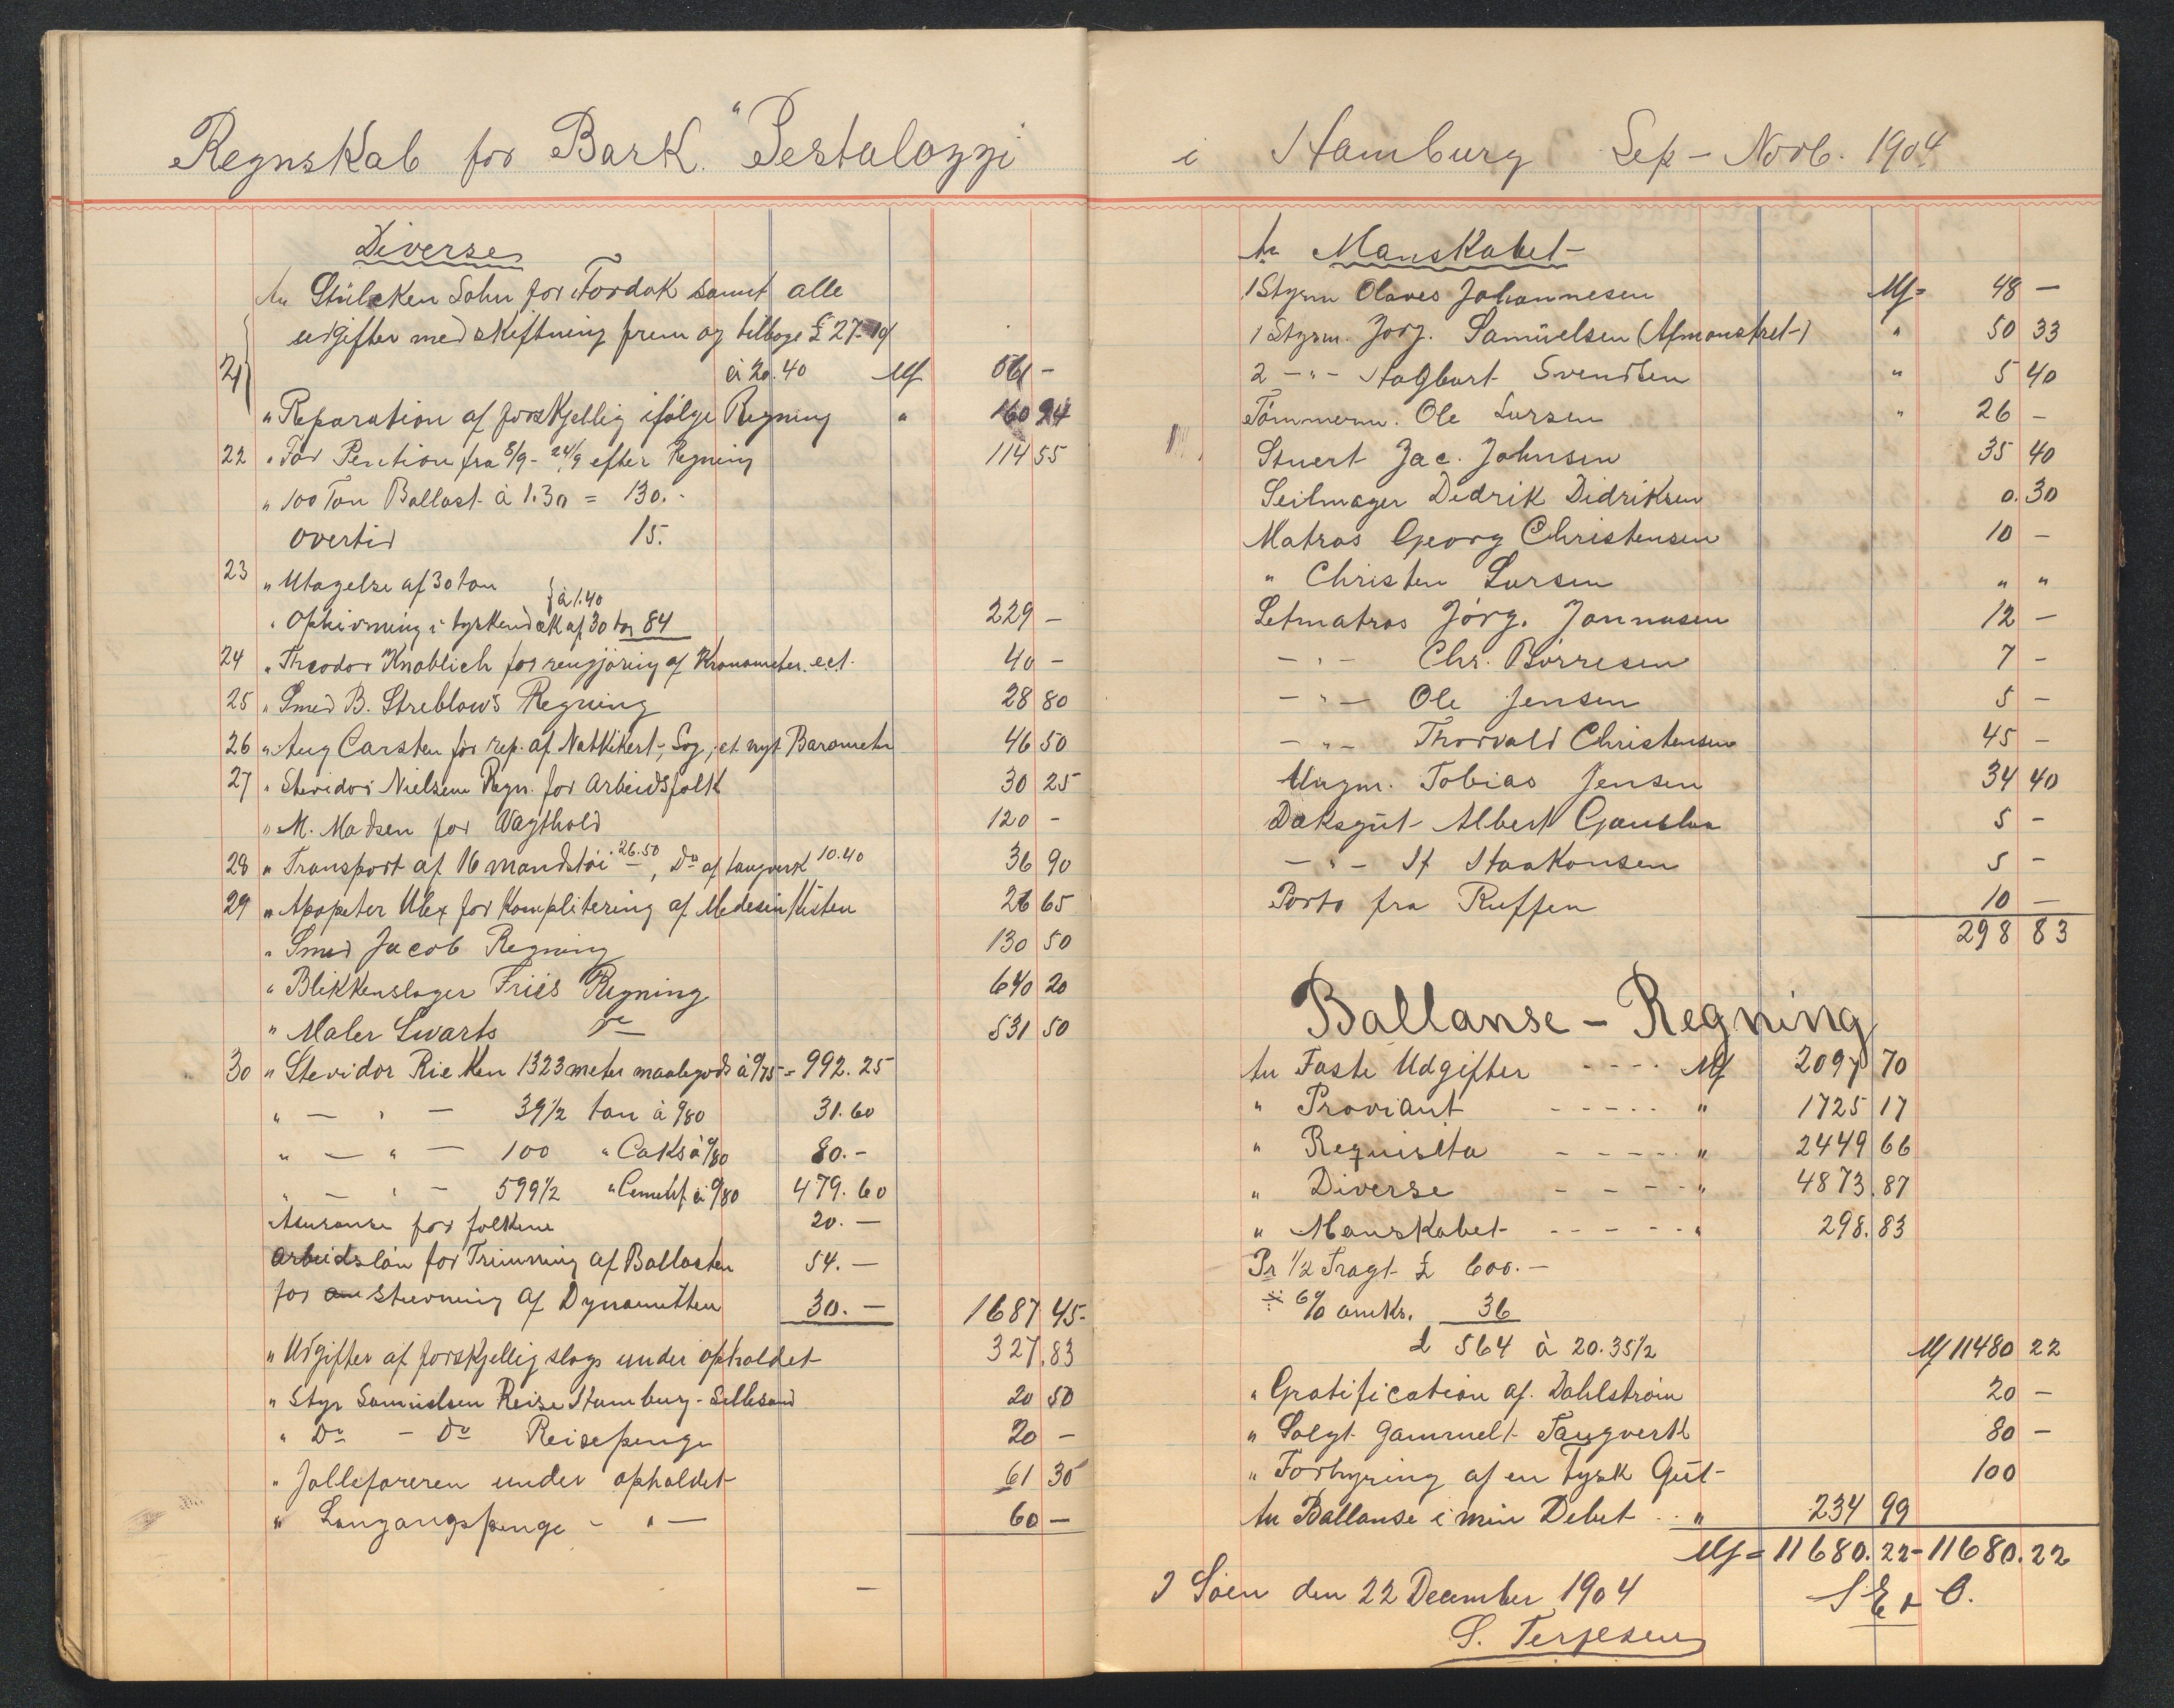 Regnskab for Bark. "Pestalozzi
Diverse
An Stülcken Sohn for Tordok samt alle
udgifter med skiftning frem og tilbage £ 27-10
21 à 20.40 M 561 -
" Reparation af forskjellig ifølge Regning " 160 24
22 " For Pention fra 8/9 - 24/9 efter Regning 114 55
" 100 Ton Ballast à 1.30 = 130.-
overtid 15.
23 " Utagelse af 30 ton
} à 1.40
" Ophivning i tyskendæk af 30 ton 84 229 -
24 " Theodor Knoblich for rengjöring af Kronometer. ect. 40 -
25 " Smed B. Streblow's Regning 28 80
26 " Aug Carsten for rep. af Natkikert, Log, et nyt Barometer 46 50
27 " Stevidor Nielsens Regn. for Arbeidsfolk 30 25
" M. Madsen for Vagthold 120 -
28 " Transport af 16 mandstöi 26.50, Do af taugverk 10.40 36 90
29 " Apopeter Ulex for Komplitering af Medesin Kisten 26 65
" Smed Jacob Regning 130 50
" Blikkenslager Friis Regning 640 20
" Maler Swarts Do 531 50
30 " Stevidor Rieken 1323 meter maalegods à 0/75 = 992.25
" — " — 39 1/2 ton à 0/80 31.60
" — " — 100 " Caks à 0/80 80.-
" — " — 599 1/2 " Cement à 0/80 479.60
Asuranse for folkene 20.—
Arbeidslön for Trimning af Ballasten 54.—
for stuvning af Dynamitten 30.— 1687 45-
" Udgifter af forskjellig slags under opholdet 327.83
" Styr Samuelsen Reise Hamburg - Lillesand 20 50
" Do - Do Reisepenge 20 -
" Jolleföreren under opholdet 61 30
" Langangspenge - " — 60 -
—
i Hamburg Sep - Novb. 1904
An Manskabet-
1 Styrm Olaves Johannesen M= 48 —
1 Styrm. Jorg. Samuelsen (Afmonstret-) " 50 33
2 - " - Hagbart Svendsen " 5 40
Tömmerm. Ole Larsen " 26 -
Stuert Jac. Johnsen 35 40
Seilmager Dedrik Didriksen 0.30
Matros Georg Christensen 10 -
" Christen Larsen " "
Letmatros Jörg. Jonnasen 12 -
- " - Chr. Börresen 7 -
- " - Ole Jensen 5 -
- " - Thorvald Christensen 45 -
Ungm. Tobias Jensen 34 40
Daksgut Albert 5 -
- " - Haakonsen 5 -
Porto fra Ruffen 10 —
298 83
Ballanse - Regning
An Faste Udgifter - - - - M 2097 70
" Proviant - - - - - " 1725 17
" Requisita - - - - - " 2449 66
" Diverse - - - - " 4873.87
" Manskabet - - - - - " 298.83
Pr 1/2 Fragt £ 600.—
÷ 6% omk. 36
£ 564 à 20.35 1/2 M 11480 22
" Gratification af. Dahlström 20 -
" Solgt gammelt Taugverk 80 -
" Forhyring af en tysk Gut- 100
An Ballanse i min Debet . . " 234 99
M = 11680.22 - 11680.22
I Söen den 22 December 1904 S E & O.
S. Terjesen